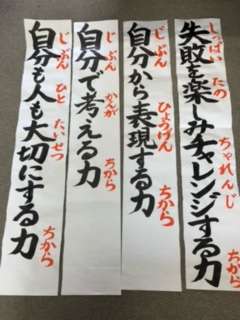 失敗を楽しみチャレンジする力
しっぱい たの ちゃれんじ ちから
自分から表現する力
じぶん ひょうげん ちから
自分で考える力
じぶん かんが ちから
自分も人も大切にする力
じぶん ひと たいせつ ちから